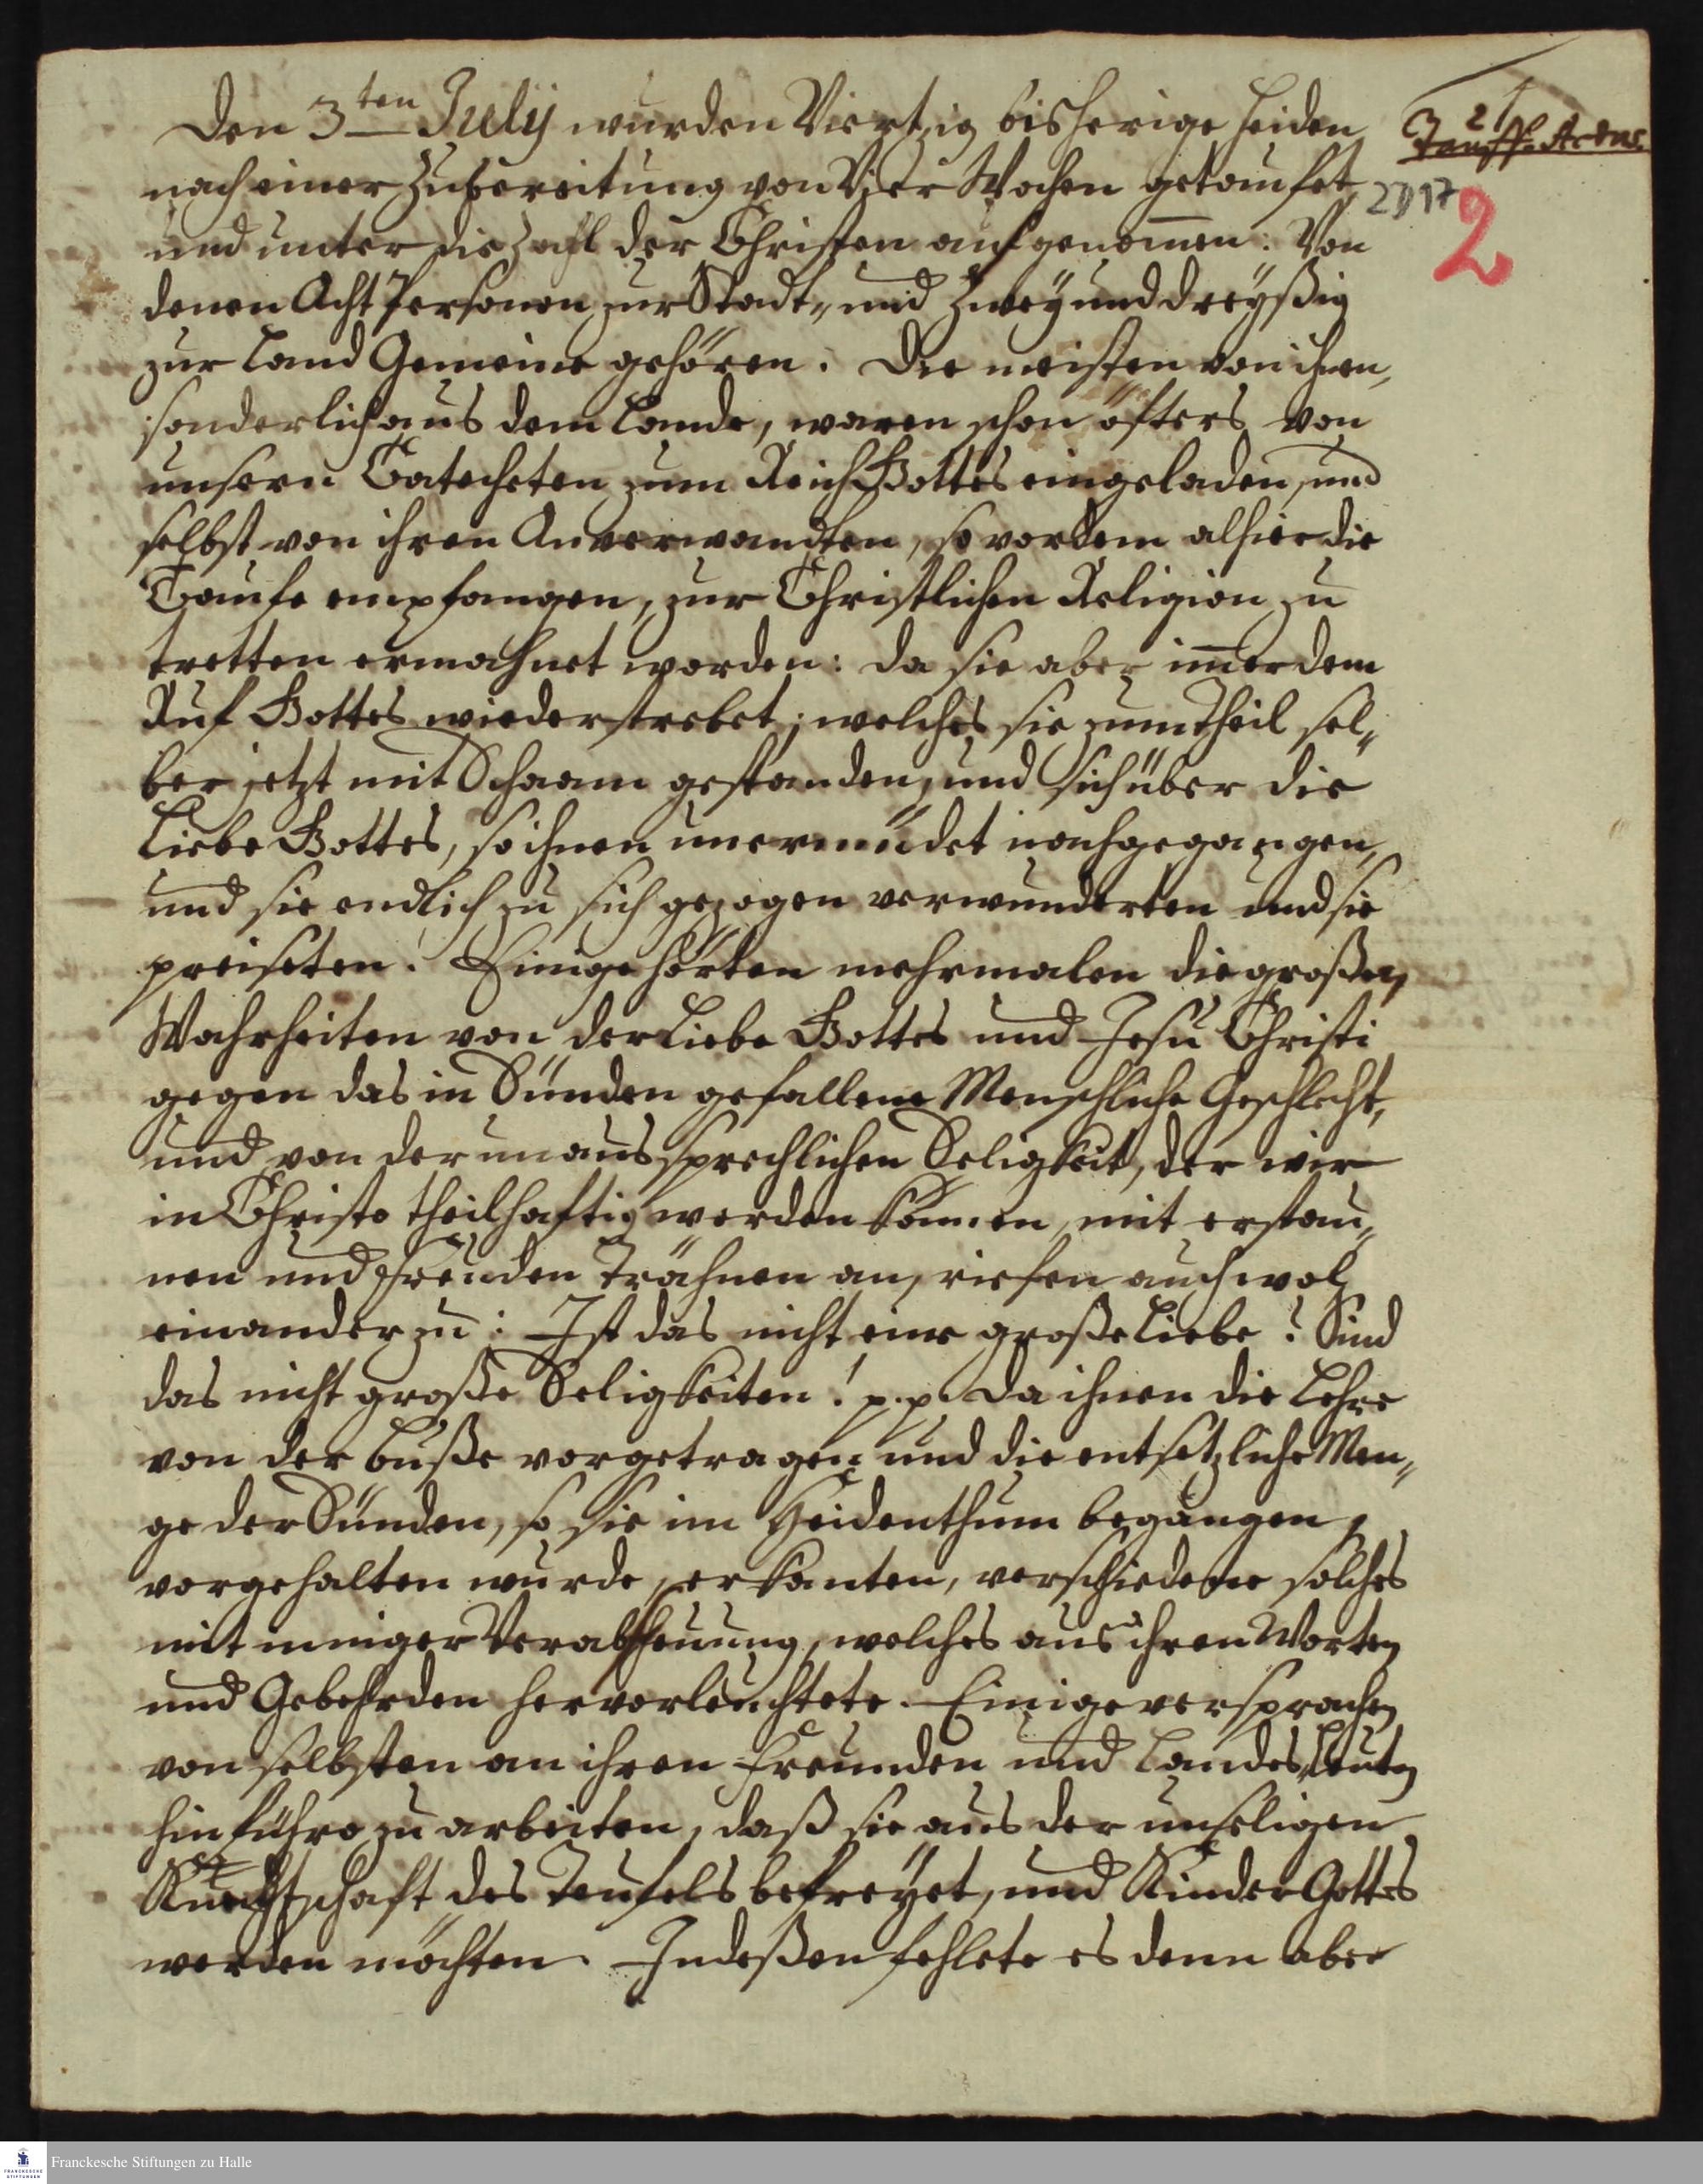 Den 3ten Julij wurden Viertzig bisherige Heiden
nach einer Zubereitung von Vier Wochen getaufet,
und unter die Zahl der Christen aufgenom̅en: Von
denen Acht Personen zur Stadt„ und Zwey und dreyßig
zur Land Gemeine gehören. Die meisten von ihnen,
sonderlich aus dem Lande, waren schon öfters von
unsern Catecheten zum Reich Gottes eingeladen, und
selbst von ihren Anverwandten, so vordem alhier die
Taufe empfangen, zur Christlichen Religion zu
tretten ermahnet worden: da sie aber im̅er dem
Ruf Gottes wiederstrebet; welches sie zum Theil sel„
ber jetzt mit Schaam gestanden, und sich über die
Liebe Gottes, so ihnen unermüdet nachgegangen,
und sie endlich zu sich gezogen verwunderten und sie
preiseten. Einige hörten mehrmalen die großen
Wahrheiten von der Liebe Gottes und Jesu Christi
gegen das in Sünden gefallene Menschliche Geschlecht,
und von der unaussprechlichen Seligkeit, der wir
in Christo theilhaftig werden können, mit erstau„
nen und Freuden Trähnen an, riefen auch wol
einander zu: Ist das nicht eine große Liebe! Sind
das nicht große Seligkeiten! p. p. Da ihnen die Lehre
von der Buße vorgetragen und die entsetzliche Men„
ge der Sünden, so sie im Heidenthum begangen,
vorgehalten wurde, erkanten, verschiedene solches
mit inniger Verabscheuung, welches aus ihren Worten
und Gebehrden hervorleuchtete. Einige versprachen
von selbsten an ihren Freunden und Landes„Leuten
hinführo zu arbeiten, daß sie aus der unseligen
Knechtschaft des Teufels befreyet, und Kinder Gottes
werden möchten. Indeßen fehlete es denn aber
2
Tauff-Actus.
2D17
2
Franckesche Stiftungen zu Halle
FRANCKESCHE
STIFTUNGEN